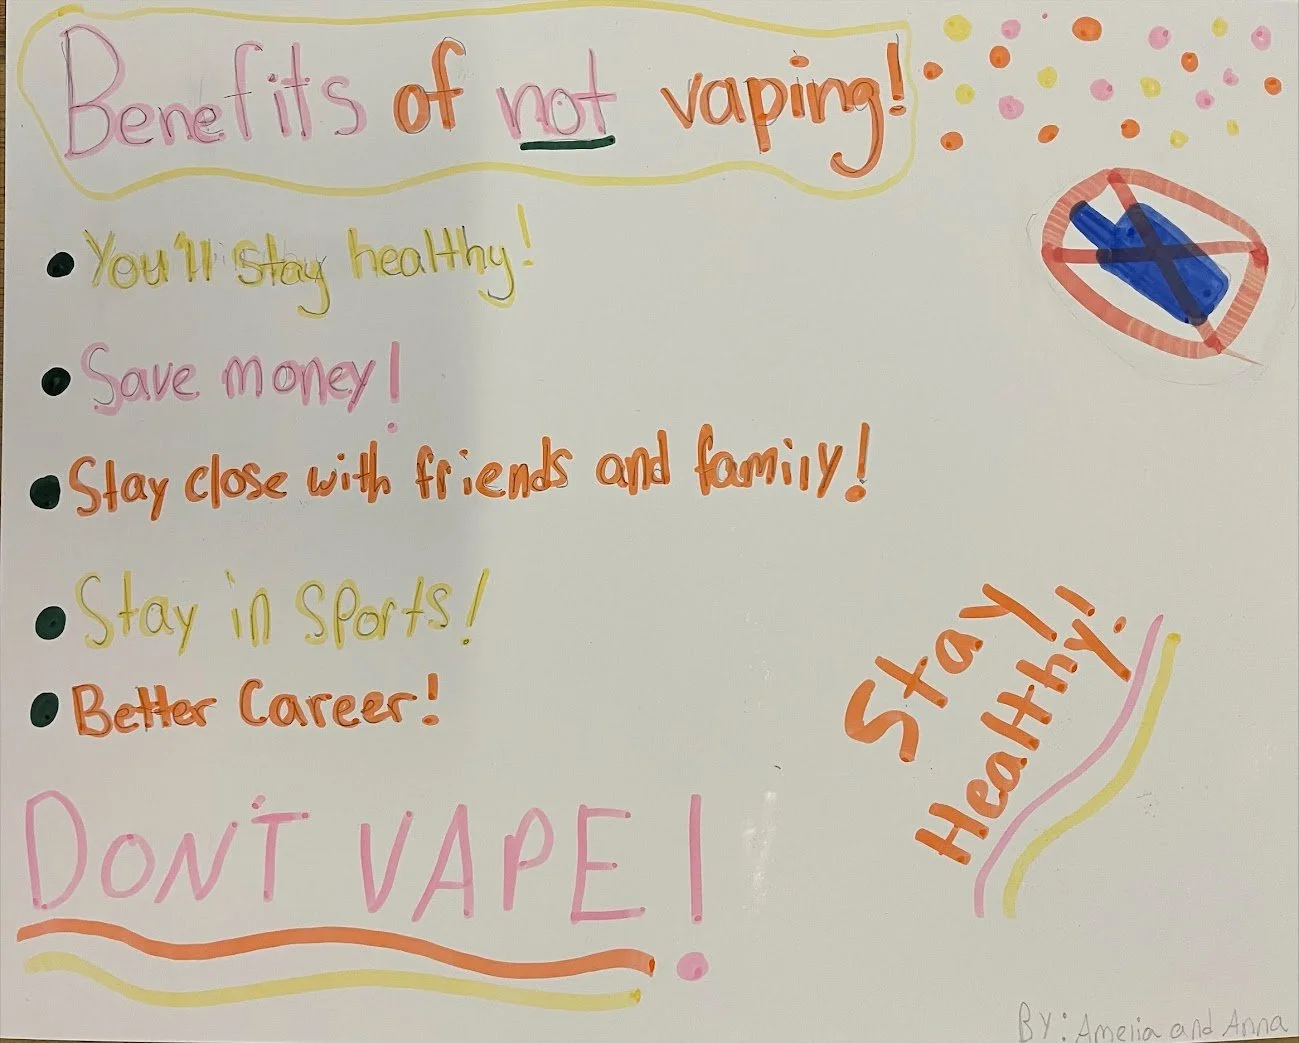 Benefits of not vaping!
You'll stay healthy!
Save money!
Stay close with friends and family!
Stay in sports!
Better Career!
Stay
Healthy!
DON'T VAPE!
BY: Amelia and Anna